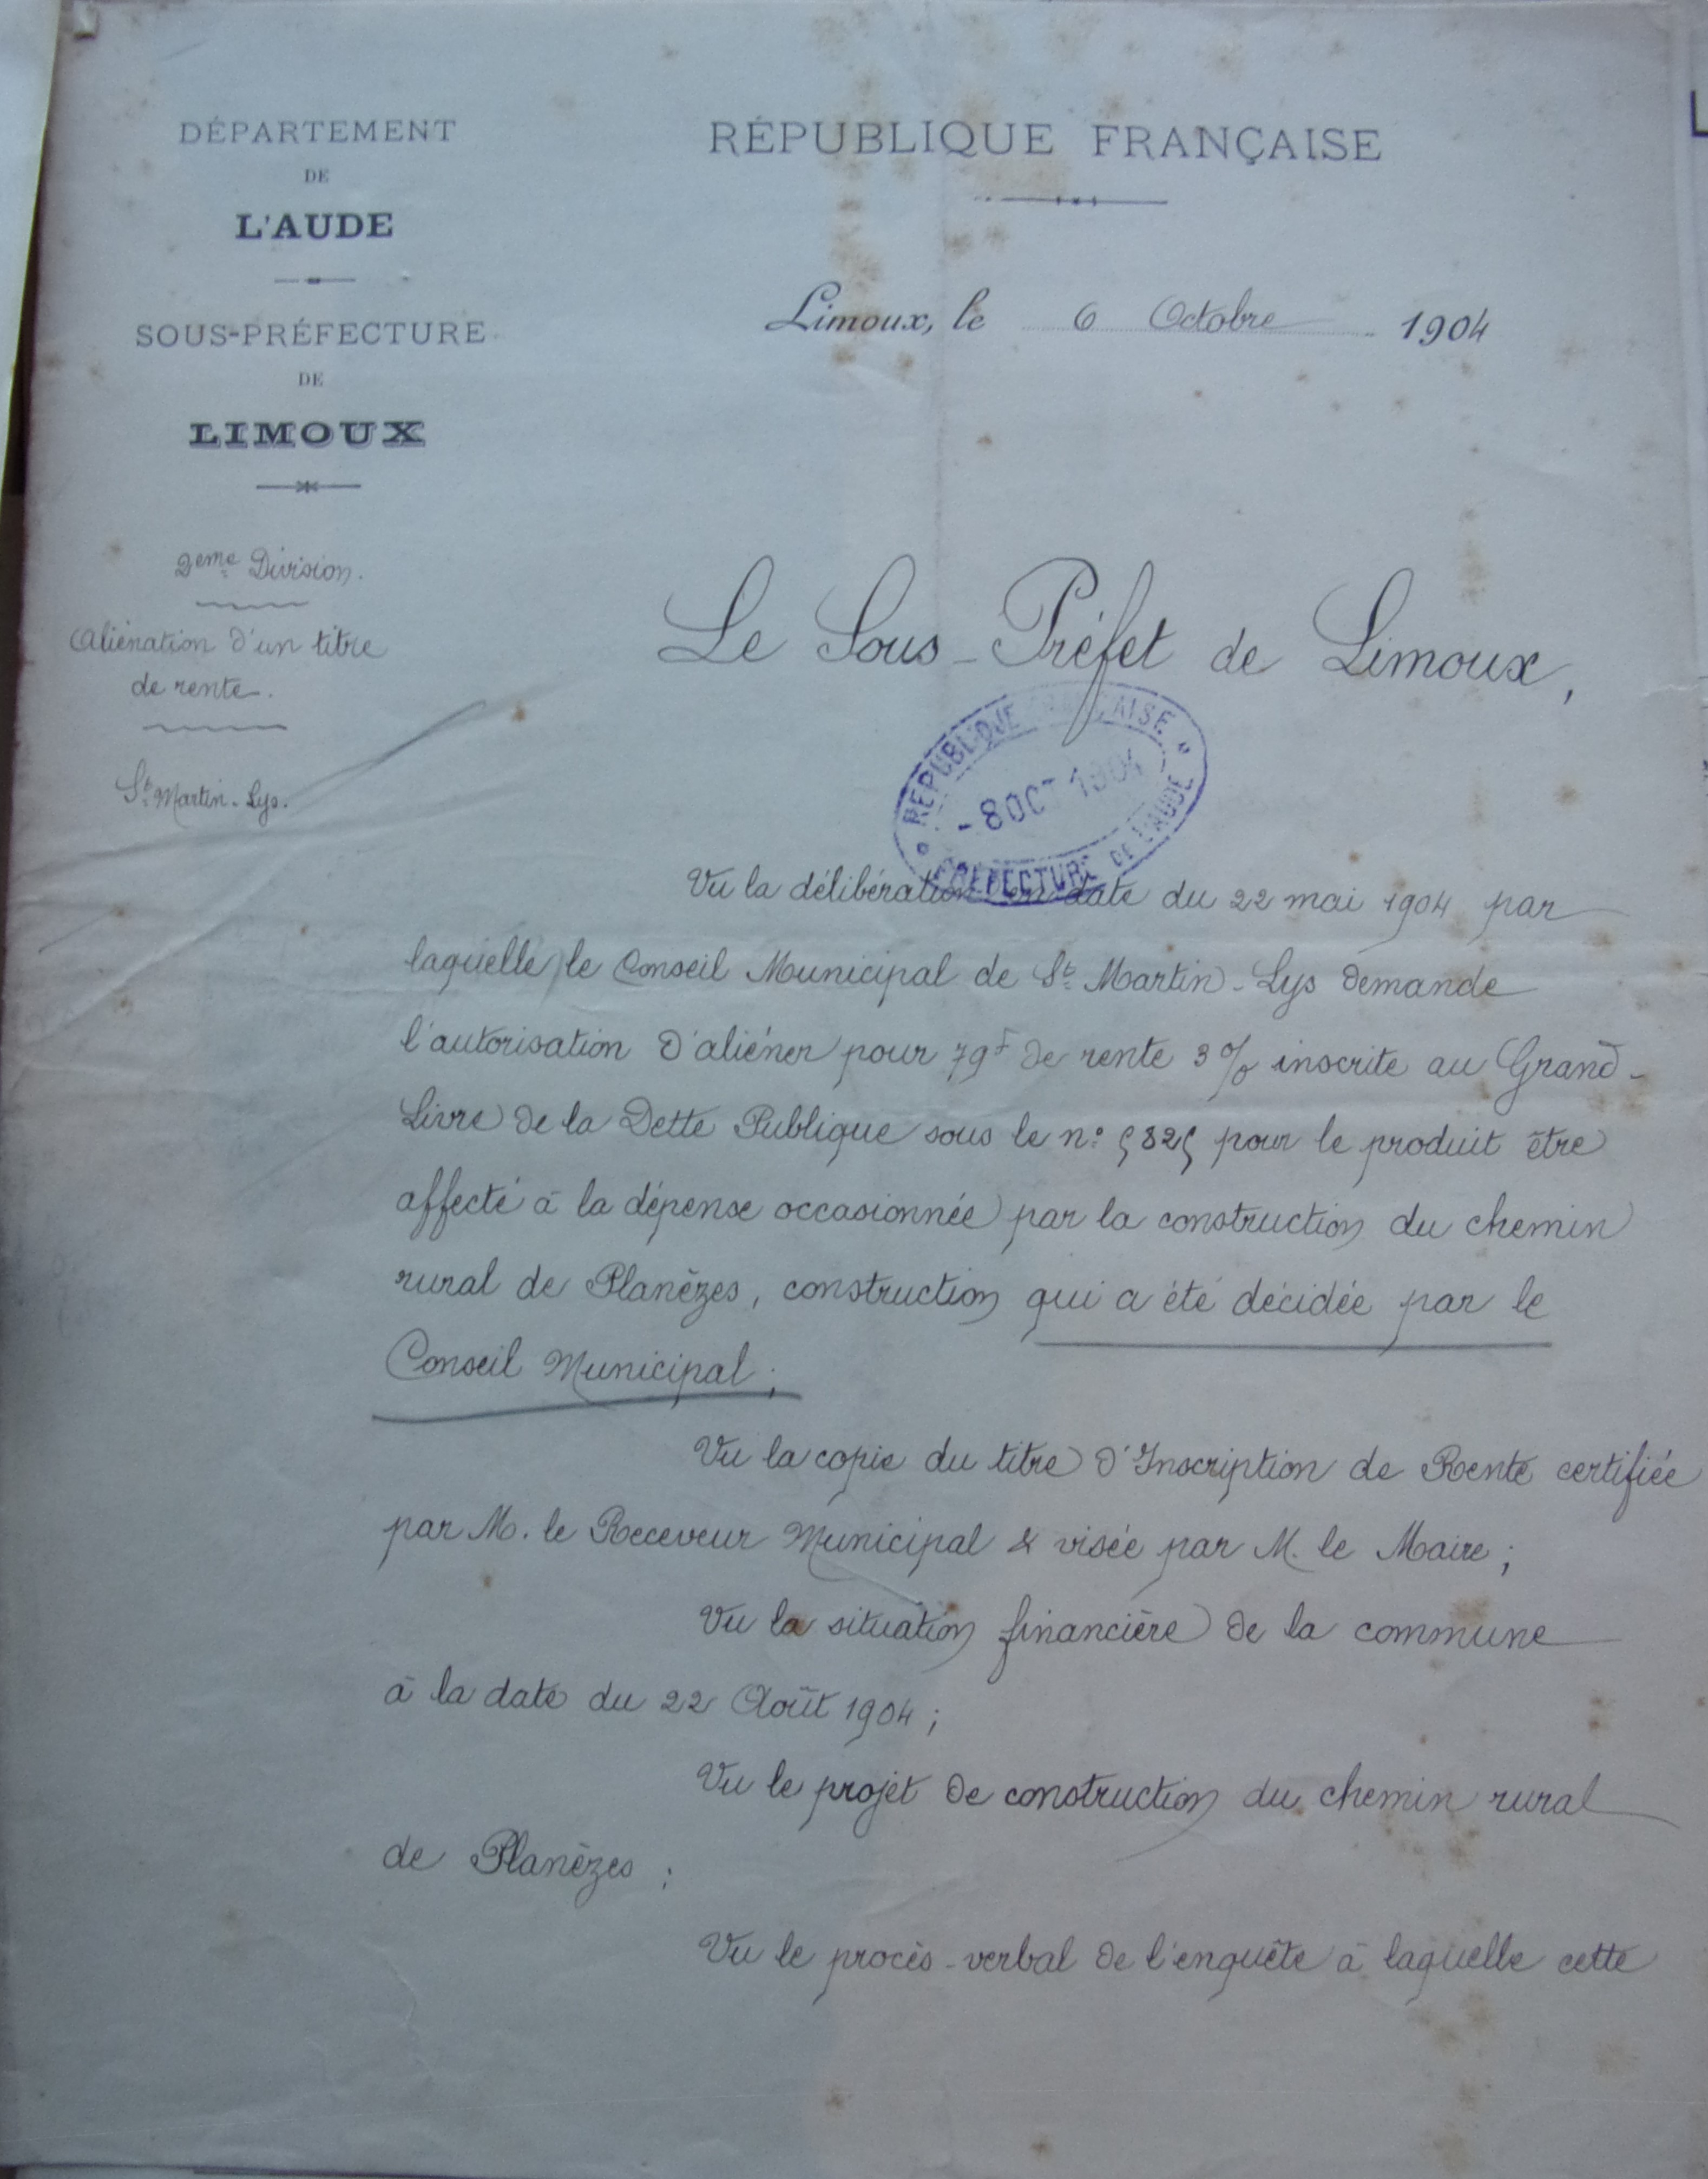 DÉPARTEMENT
DE
L'AUDE
SOUS-PRÉFECTURE
DE
LIMOUX
2eme Division.
Aliénation d'un titre
de rente.
St Martin-Lys.
RÉPUBLIQUE FRANÇAISE
Limoux, le 6 Octobre 1904
Le Sous-Préfet de Limoux,
RÉPUBLIQUE FRANÇAISE
- 8 OCT 1904
PRÉFECTURE DE L'AUDE
Vu la délibération en date du 22 mai 1904 par
laquelle le Conseil Municipal de St Martin-Lys demande
l'autorisation d'aliéner pour 79f de rente 3% inscrite au Grand-
Livre de la Dette Publique sous le n° 5825 pour le produit être
affecté à la dépense occasionnée par la construction du chemin
rural de Planèzes, construction qui a été décidée par le
Conseil Municipal;
Vu la copie du titre d'Inscription de Rente certifiée
par M. le Receveur Municipal & visée par M. le Maire;
Vu la situation financière de la commune
à la date du 22 Août 1904;
Vu le projet de construction du chemin rural
de Planèzes;
Vu le procès-verbal de l'enquête à laquelle cette